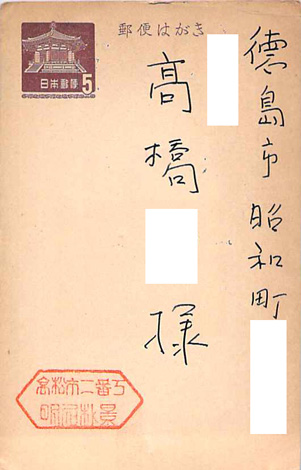 郵便はがき
日本郵便
5
徳島市昭和町
高橋
様
高松市二番丁